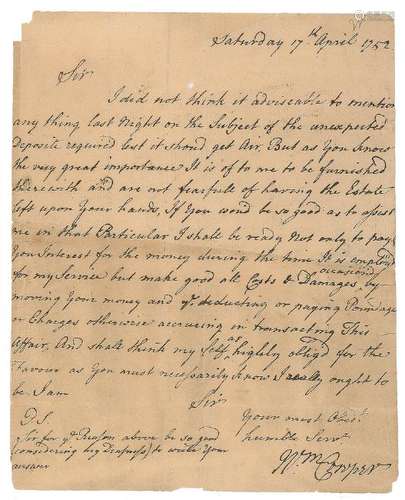 Saturday 17th April 1752
Sir
I did not think it adviseable to mention
any thing last Night on the Subject of the unexpected
Deposite required lest it should get Air. But as You know
the very great importance It is of to me to be furnished
therewith and are not fearfull of having the Estate
left upon Your hands, If You wou'd be so good as to assist
me in that Particular I shall be ready Not only to pay
You Interest for the money during the time It is employd
for my Service but make good all Costs & Damages occasioned by
moving Your money and ye deducting or paying Poundage
or Charges otherwise accruing in transacting This
Affair, And shall think my Self as highly oblig'd for the
Favour as You must necessarily know I really ought to
be I am
Sir
Your most Obedt
humble Servt
Wm Cowper
P.S.
Sir for ye Reason above be so good
(considering his Deafness) to write Your
answer